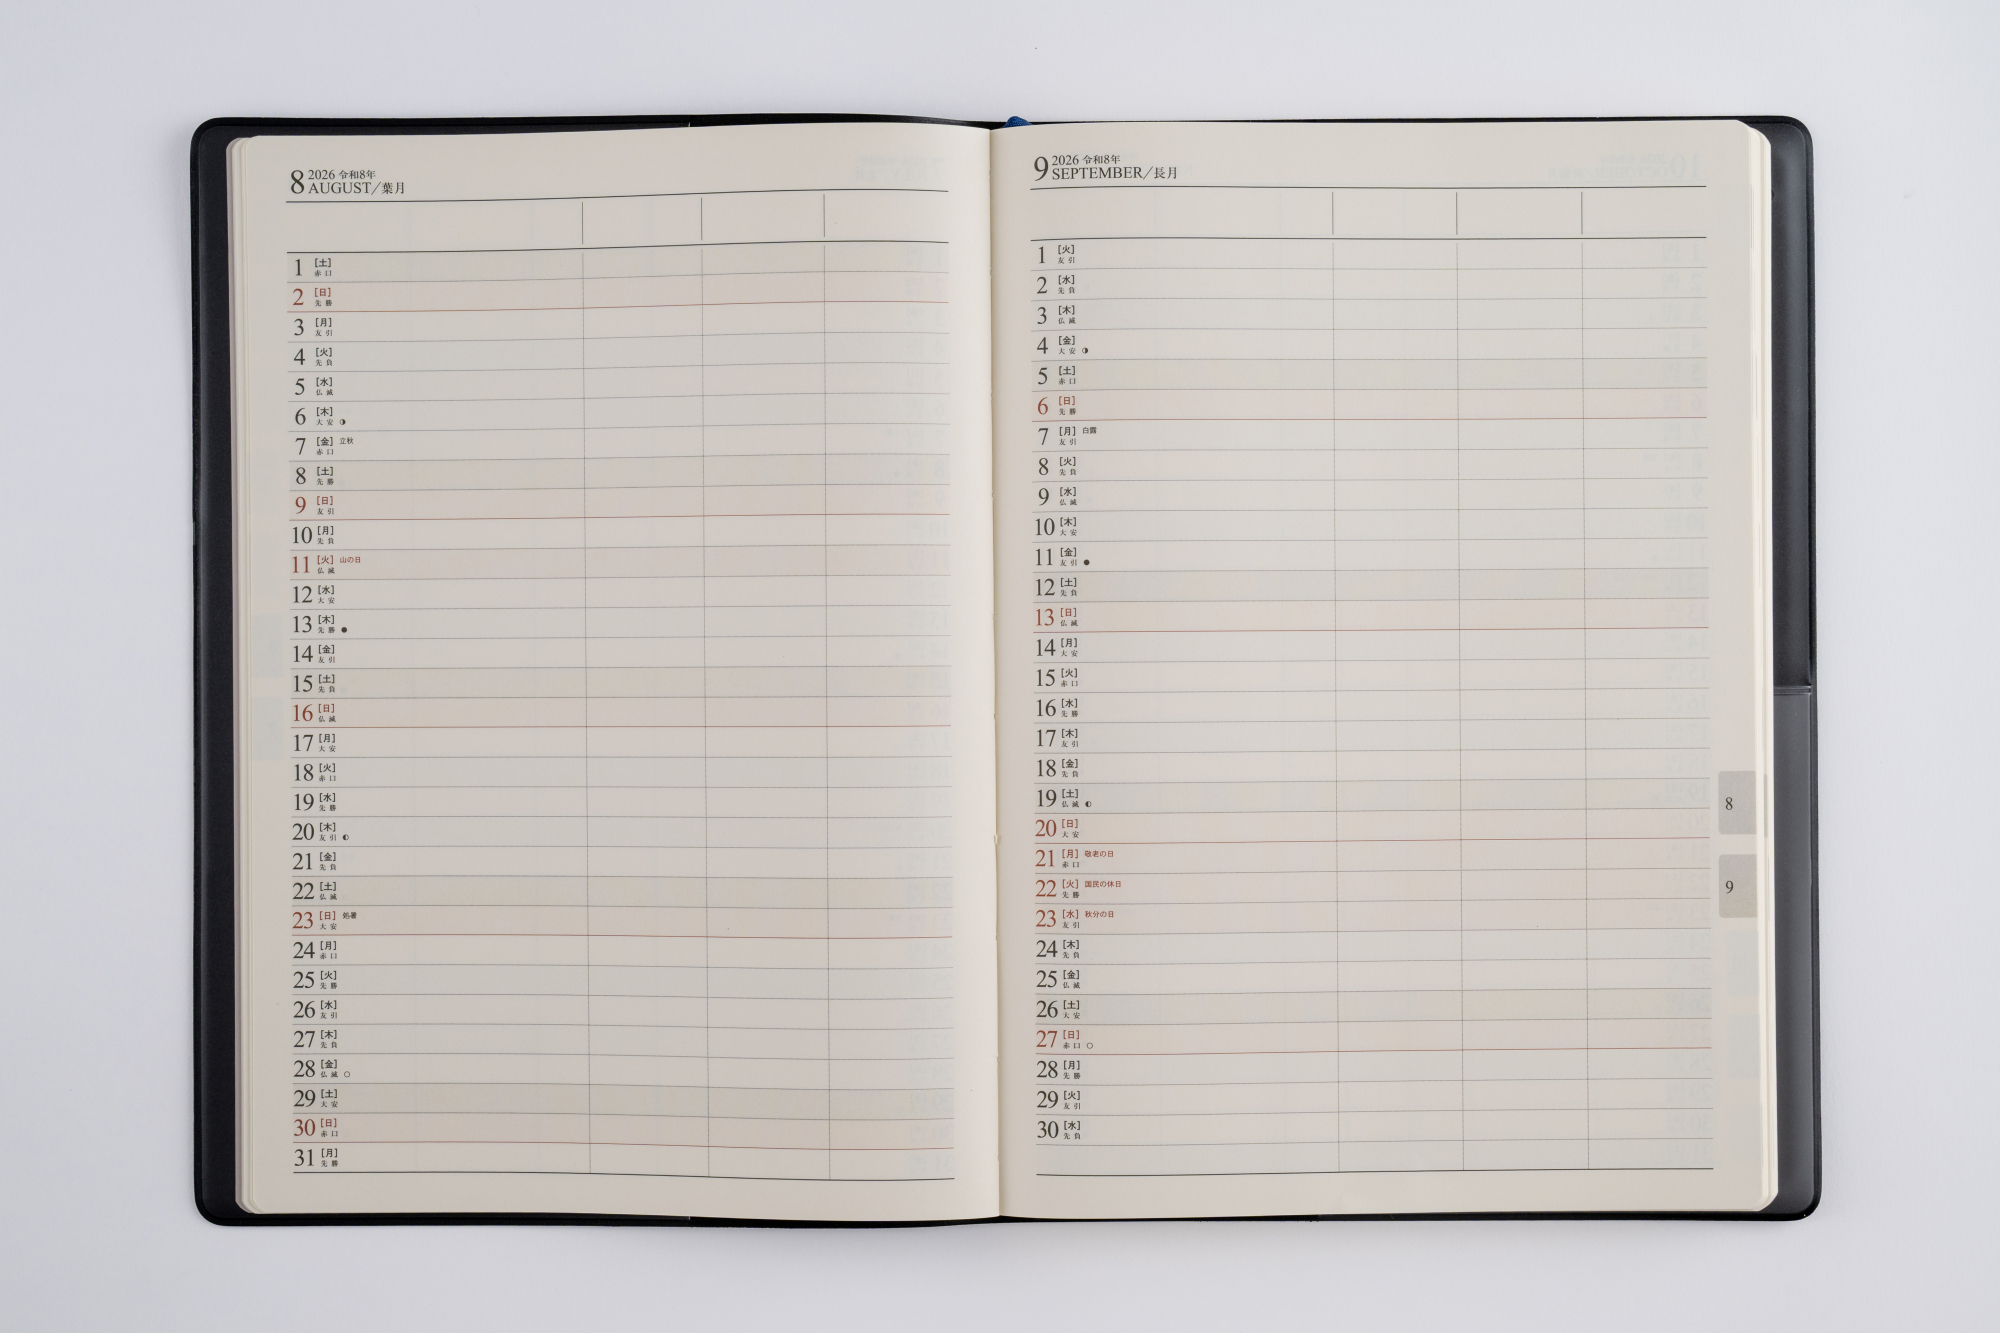 8 2026 令和8年
AUGUST／葉月
1 [土]
赤口
2 [日]
先勝
3 [月]
友引
4 [火]
先負
5 [水]
仏滅
6 [木]
大安 ◑
7 [金] 立秋
赤口
8 [土]
先勝
9 [日]
友引
10 [月]
先負
11 [火] 山の日
仏滅
12 [水]
大安
13 [木]
先勝 ●
14 [金]
友引
15 [土]
先負
16 [日]
仏滅
17 [月]
大安
18 [火]
赤口
19 [水]
先勝
20 [木]
友引 ◐
21 [金]
先負
22 [土]
仏滅
23 [日] 処暑
大安
24 [月]
赤口
25 [火]
先勝
26 [水]
友引
27 [木]
先負
28 [金]
仏滅 ○
29 [土]
大安
30 [日]
赤口
31 [月]
先勝
9 2026 令和8年
SEPTEMBER／長月
1 [火]
友引
2 [水]
先負
3 [木]
仏滅
4 [金]
大安 ◑
5 [土]
赤口
6 [日]
先勝
7 [月] 白露
友引
8 [火]
先負
9 [水]
仏滅
10 [木]
大安
11 [金]
友引 ●
12 [土]
先負
13 [日]
仏滅
14 [月]
大安
15 [火]
赤口
16 [水]
先勝
17 [木]
友引
18 [金]
先負
19 [土]
仏滅 ◐
20 [日]
大安
21 [月] 敬老の日
赤口
22 [火] 国民の休日
先勝
23 [水] 秋分の日
友引
24 [木]
先負
25 [金]
仏滅
26 [土]
大安
27 [日]
赤口 ○
28 [月]
先勝
29 [火]
友引
30 [水]
先負
8
9